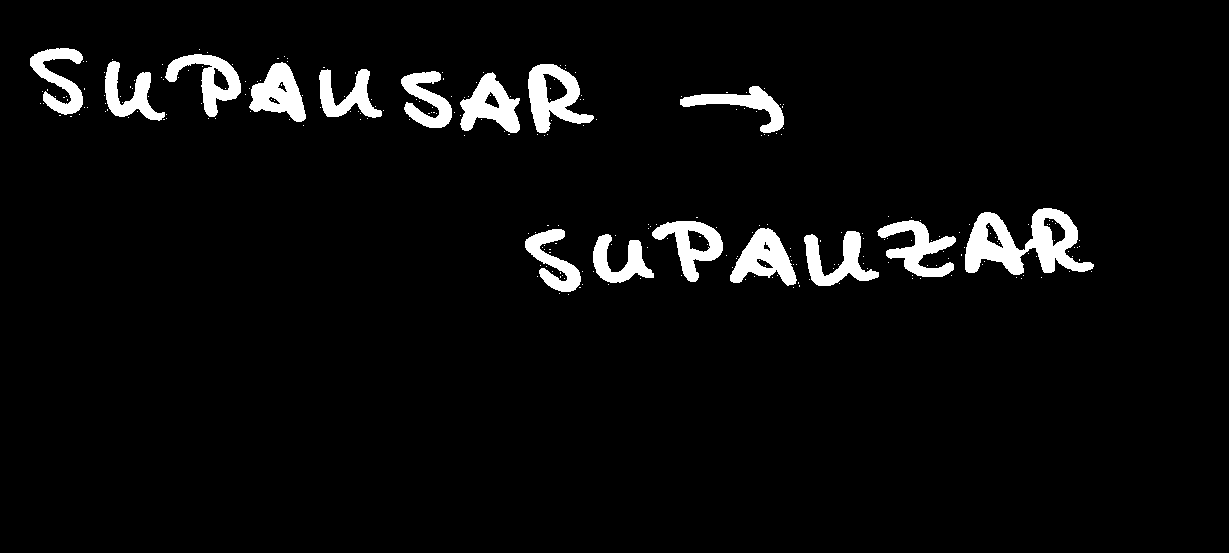 SUPAUSAR →
SUPAUZAR